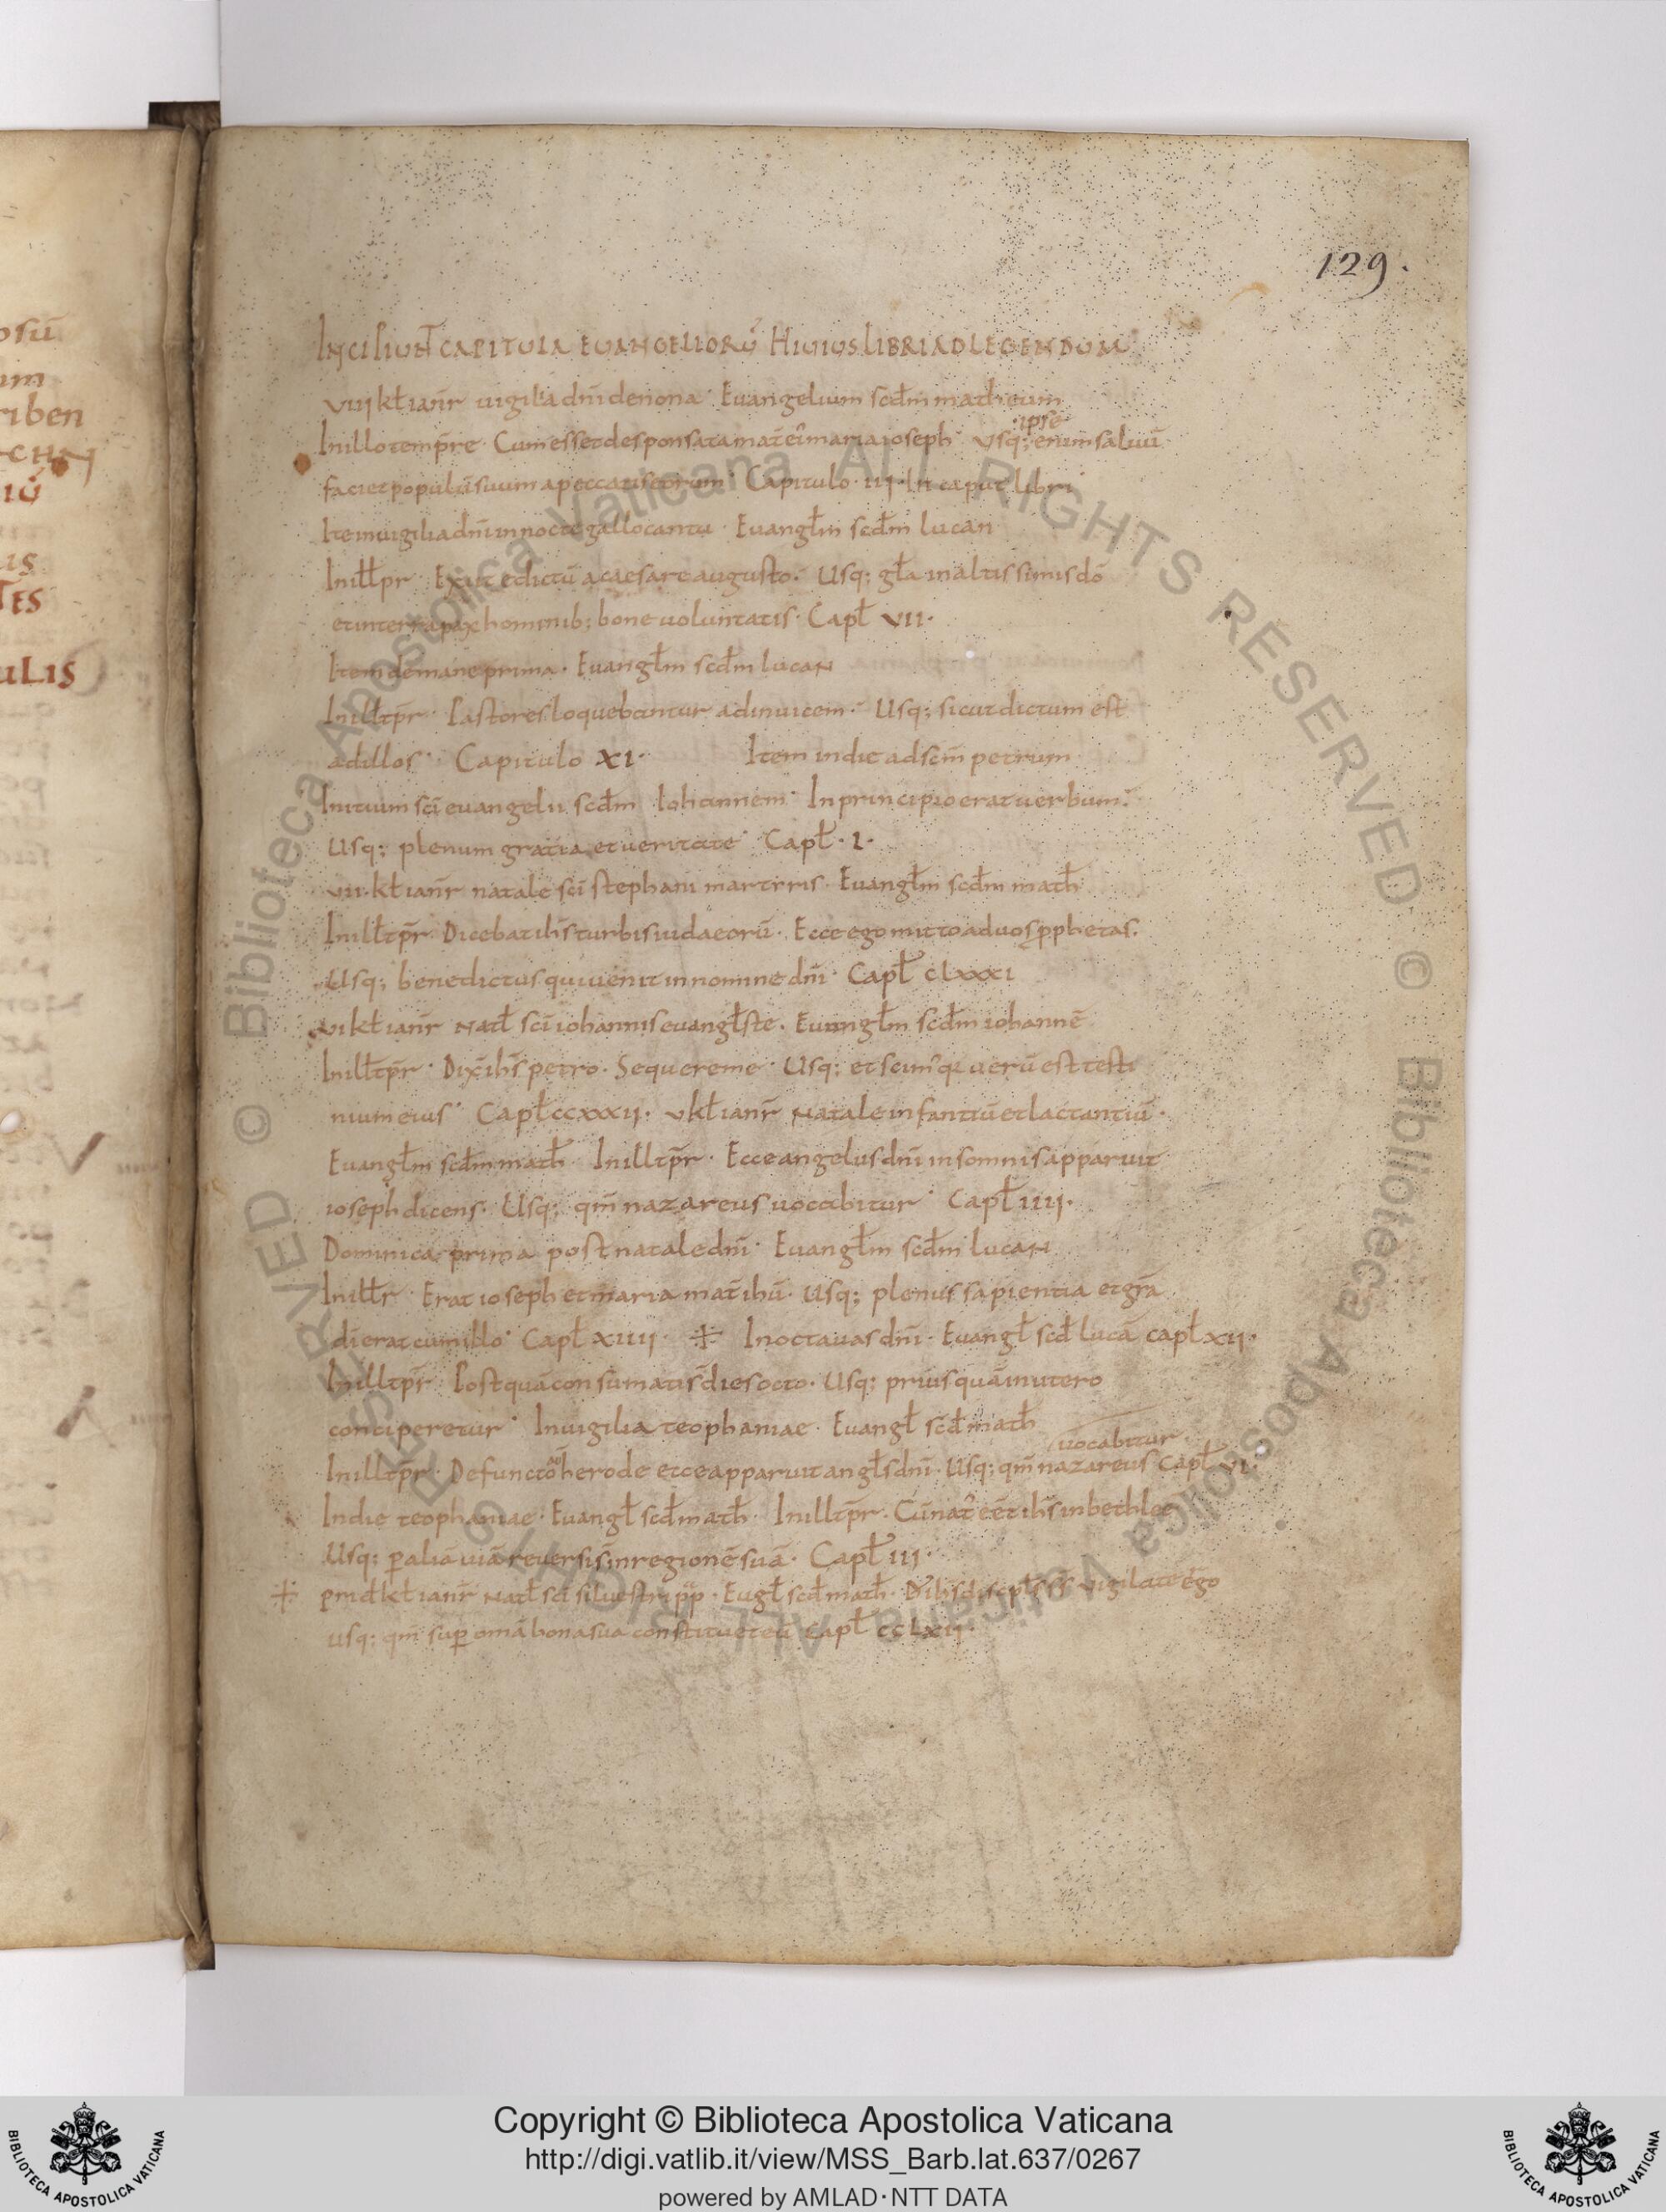 osū
um
riben
CHN
IŪ
is
TES
ULIS
129.
INCIPIUNT CAPITULA EUANGELIORŪ HUIUS LIBRI AD LEGENDUM
VIIII kł ianr̄ uigilia dn̄i de nona· Euangelium scdm̄ matheum
ipse
In illo tempr̄e· Cum esset desponsata mater̄ maria ioseph· Usq; enim saluū
faciet populū suum a peccatis eorum· Capitulo· III· In caput libri
Item uigilia dn̄i in nocte gallocantu· Euangłm scdm̄ lucan
In iłł pr· Exiit edictū a caesare augusto· Usq; gła in altissimis dō
et in terra pax hominib; bone uoluntatis· Capł VII·
Item de mane prima· Euangłm scdm̄ lucaN
In iłł tpr̄· Pastores loquebantur adinuicem· Usq; sicut dictum est
ad illos· Capitulo XI· Item in die ad scm̄ petrum
Initium sc̄i euangelii scdm̄ Iohannem· In principio erat uerbum·
Usq; plenum gratia et ueritate· Capł· I·
VII· kł ianr̄ natale sc̄i stephani martyris· Euangłm scdm̄ math̄
In iłł tpr̄ Dicebat ih̄s turbis iudaeorū· Ecce ego mitto ad uos pphetas·
Usq; benedictus qui uenit in nomine dn̄i· Capł CLXXXI
VI kł ianr̄ Natł sc̄i iohannis euangłste· Euangłm scdm̄ iohannē
In iłł tpr̄· Dix̄ ih̄s petro· Sequere me· Usq; et scim' q; uerū est testi
nium eius· Capł CCXXXII· V kł ianr̄ Natale infantiū et lactantiū·
Euangłm scdm̄ math̄· In iłł tpr̄· Ecce angelus dn̄i in somnis apparuit
ioseph dicens· Usq; qm̄ nazareus uocabitur· Capł IIII·
Dominica prima post natale dn̄i· Euangłm scdm̄ lucaN
In iłł r· Erat ioseph et maria mat̄ ihū· Usq; plenus sapientia et gr̄a
di erat cum illo· Capł XIIII· ⁜ In octauas dn̄i· Euangł scd̄ lucā capł XII·
In iłł tpr̄ Postquā consumatis̄ dies octo· Usq; priusquā in utero
conciperetur· In uigilia teophaniae· Euangł scd̄ math̄
uocabitur·
In iłł tpr̄· Defuncto herode ecce apparuit angłs dn̄i· Usq; qm̄ nazareus Capł VI·
In die teophaniae· Euangł scd̄ math̄· In iłł tpr̄· Cū nat' eēt ih̄s in bethleē
Usq; p aliā uiā reuersi s̄ in regionē suā· Capł III·
⁜ Prid kł ianr̄ Natł sc̄i siluestri pp· Eugł scd̄ math̄· Dix̄ ih̄s discipłs s̄s uigilate ego
usq; qm̄ sup omā bona sua constituet eū Capł CCLXII·
© Biblioteca Apostolica Vaticana ALL RIGHTS RESERVED © Biblioteca Apostolica Vaticana ALL RIGHTS RESERVED
Copyright © Biblioteca Apostolica Vaticana
http://digi.vatlib.it/view/MSS_Barb.lat.637/0267
powered by AMLAD·NTT DATA
BIBLIOTECA APOSTOLICA VATICANA
BIBLIOTECA APOSTOLICA VATICANA